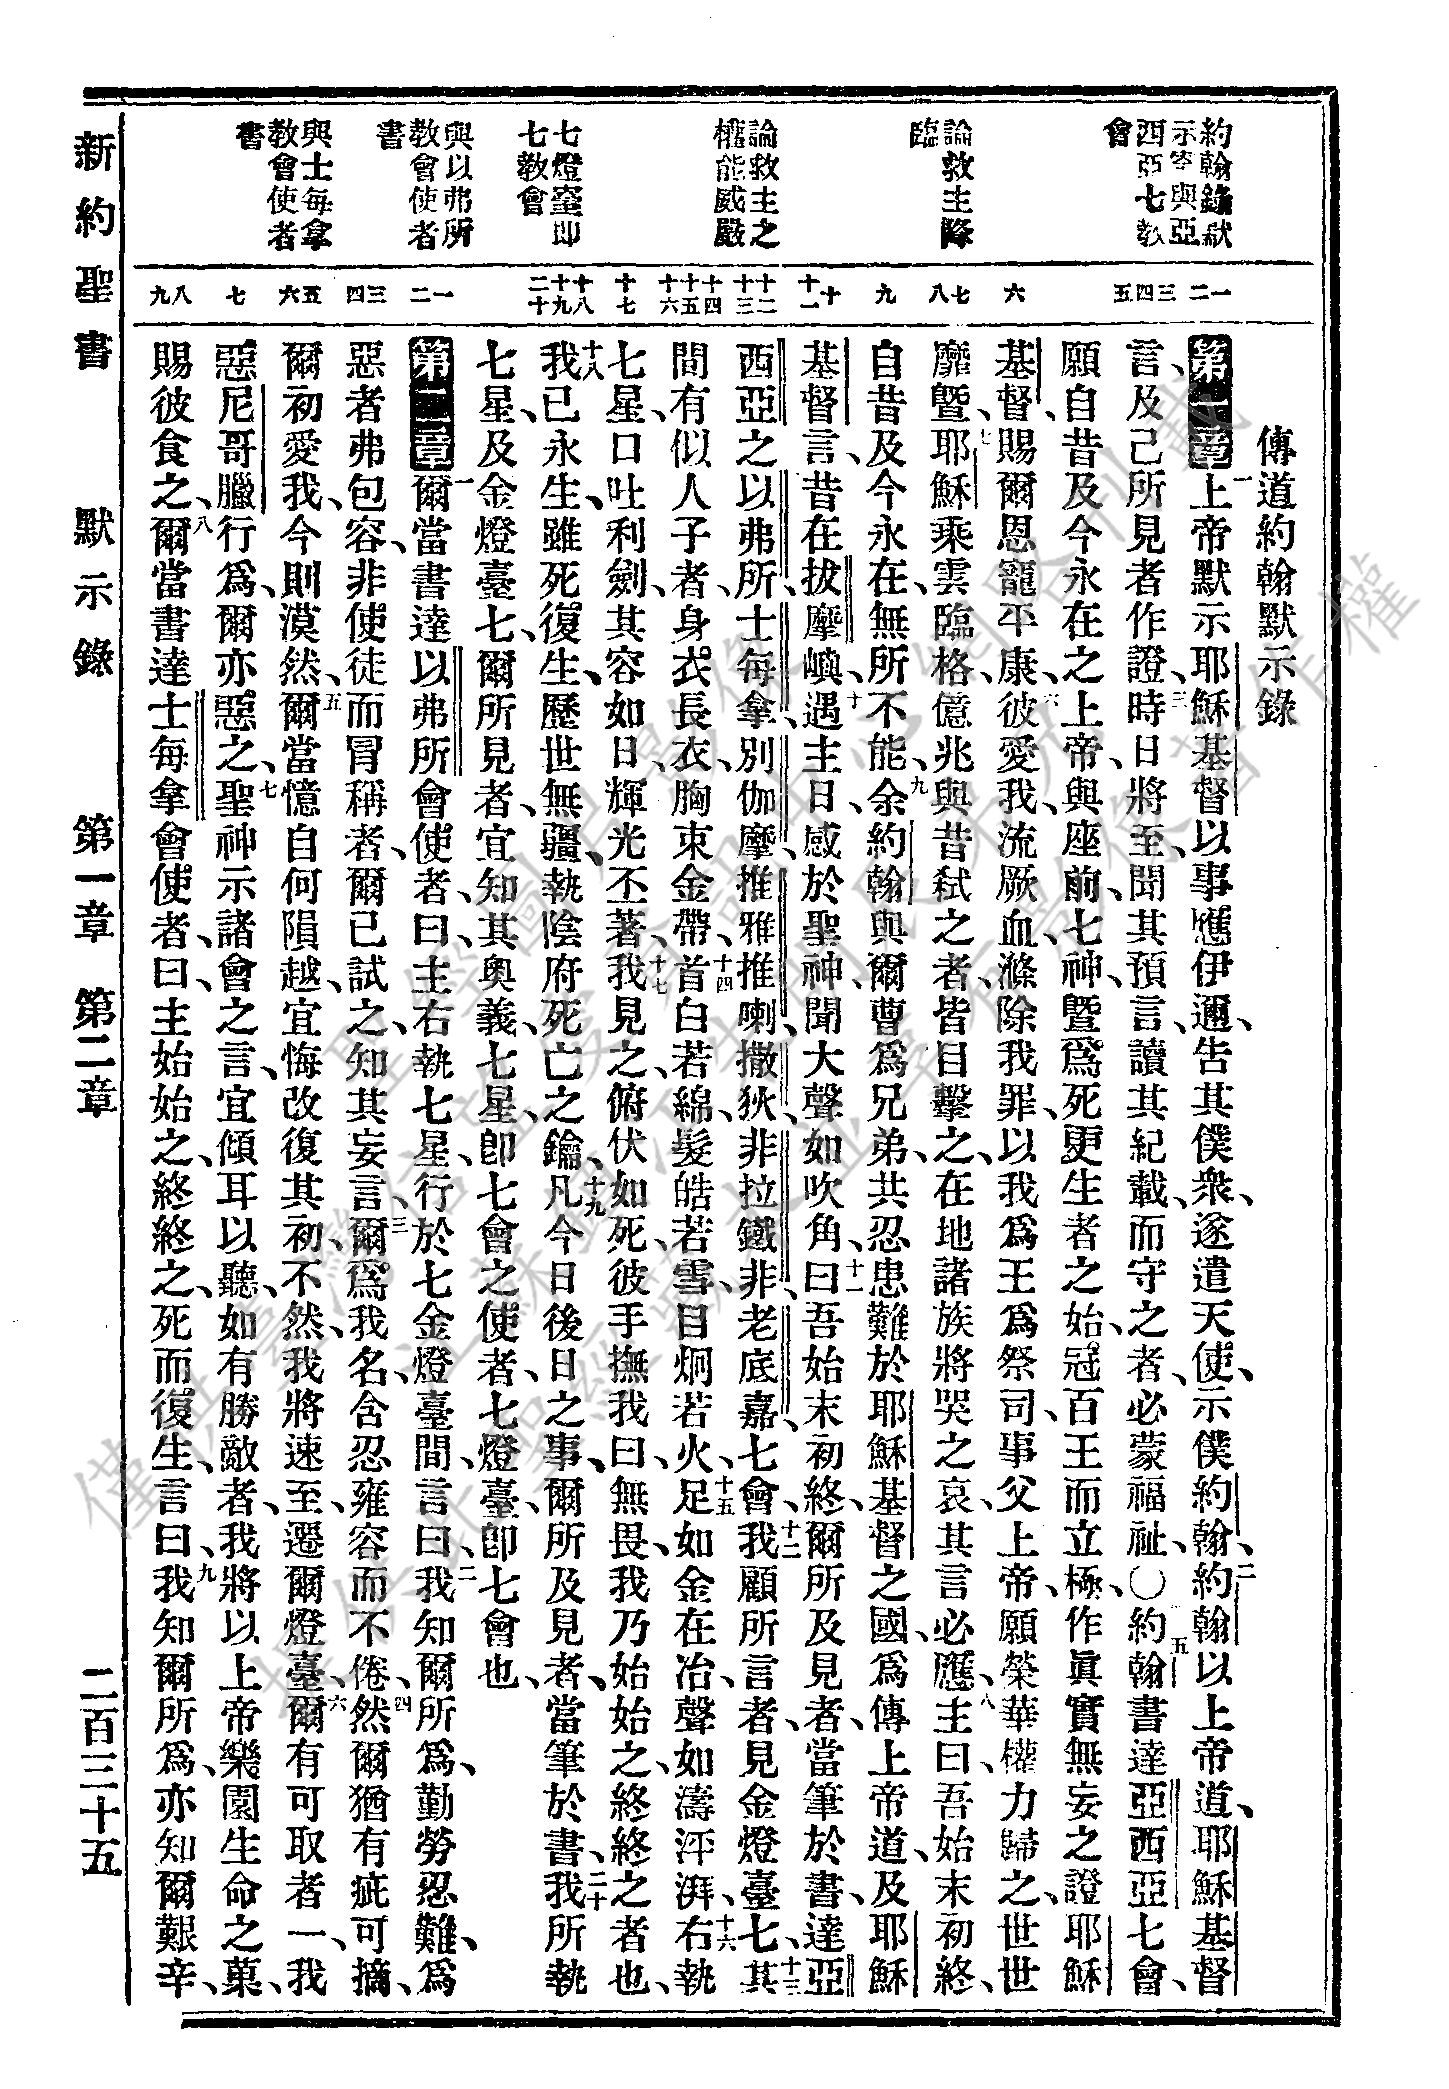 約翰錄默
示寄與亞
西亞七教
會
論救主降
臨
論救主之
權能威嚴
七燈臺即
七教會
與以弗所
教會使者
書
與士每拿
教會使者
書
一二
三四五
六
七八
九
十十一
十二十三
十四十五十六
十七
十八十九二十
一二
三四
五六
七
八九
傳道約翰默示錄
第一章一上帝默示耶穌基督以事應伊邇、告其僕衆、遂遣天使、示僕約翰、二約翰以上帝道、耶穌基督
言、及己所見者作證、三時日將至、聞其預言、讀其紀載、而守之者、必蒙福祉、〇約翰書達亞西亞七會、
願自昔及今永在之上帝、與座前七神、五暨爲死更生者之始、冠百王而立極、作眞實無妄之證耶穌
基督、賜爾恩寵平康、六彼愛我、流厥血、滌除我罪、以我爲王爲祭司、事父上帝、願榮華權力歸之、世世
靡曁、七耶穌乘雲臨格、億兆與昔弒之者、皆目擊之、在地諸族將哭之哀、其言必應、八主曰、吾始末初終、
自昔及今永在、無所不能、九余約翰與爾曹爲兄弟、共忍患難於耶穌基督之國、爲傳上帝道、及耶穌
基督言、昔在拔摩嶼、十遇主日、感於聖神、聞大聲如吹角、十一曰吾始末初終、爾所及見者、當筆於書、達亞
西亞之以弗所、士每拿、別伽摩、推雅推喇、撒狄、非拉鐵非、老底嘉、七會、十二我顧所言者、見金燈臺七、十三其
間有似人子者、身衣長衣、胸束金帶、十四首白若綿、髮皓若雪、目炯若火、十五足如金在冶、聲如濤泙湃、十六右執
七星、口吐利劍、其容如日、輝光丕著、十七我見之、俯伏如死、彼手撫我曰、無畏、我乃始始之、終終之者也、
十八我已永生、雖死復生、歷世無疆、執陰府死亡之鑰、十九凡今日後日之事、爾所及見者、當筆於書、二十我所執
七星、及金燈臺七、爾所見者、宜知其奥義、七星、卽七會之使者、七燈臺、卽七會也、
第二章一爾當書達以弗所會使者、曰、主右執七星、行於七金燈臺間、言曰、二我知爾所爲、勤勞忍難、爲
惡者弗包容、非使徒而冒稱者、爾已試之、知其妄言、三爾爲我名、含忍雍容而不倦、四然爾猶有疵可摘、
爾初愛我、今則漠然、五爾當憶自何隕越、宜悔改復其初、不然、我將速至、遷爾燈臺、六爾有可取者一、我
惡尼哥臘行爲、爾亦惡之、七聖神示諸會之言、宜傾耳以聽、如有勝敵者、我將以上帝樂園生命之菓、
賜彼食之、八爾當書達士每拿會使者、曰、主始始之、終終之、死而復生、言曰、九我知爾所爲、亦知爾艱辛、
新約聖書　默示錄　第一章　第二章　二百三十五